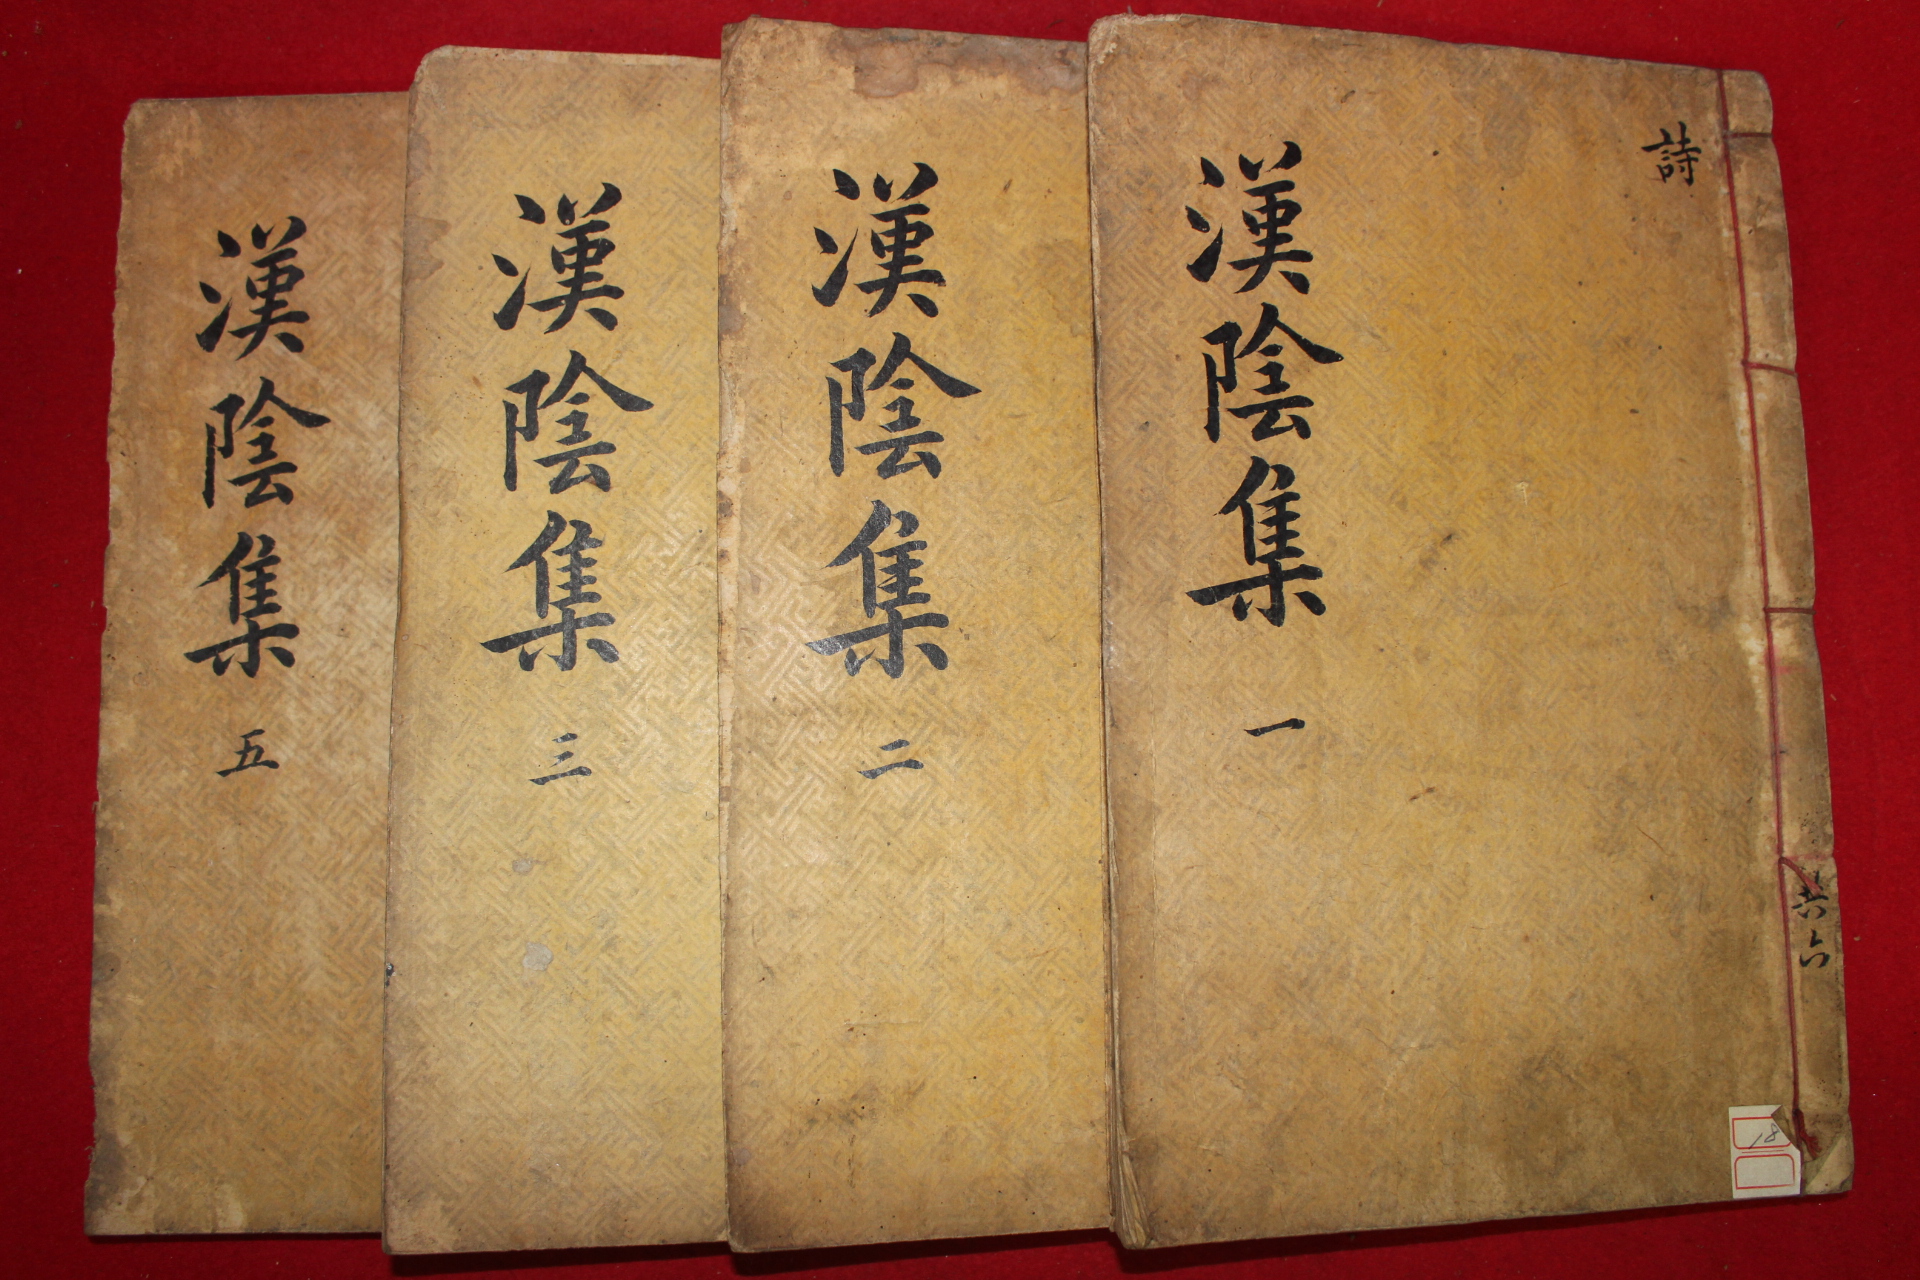 詩
漢陰集 一
共六
18
漢陰集 二
漢陰集 三
漢陰集 五